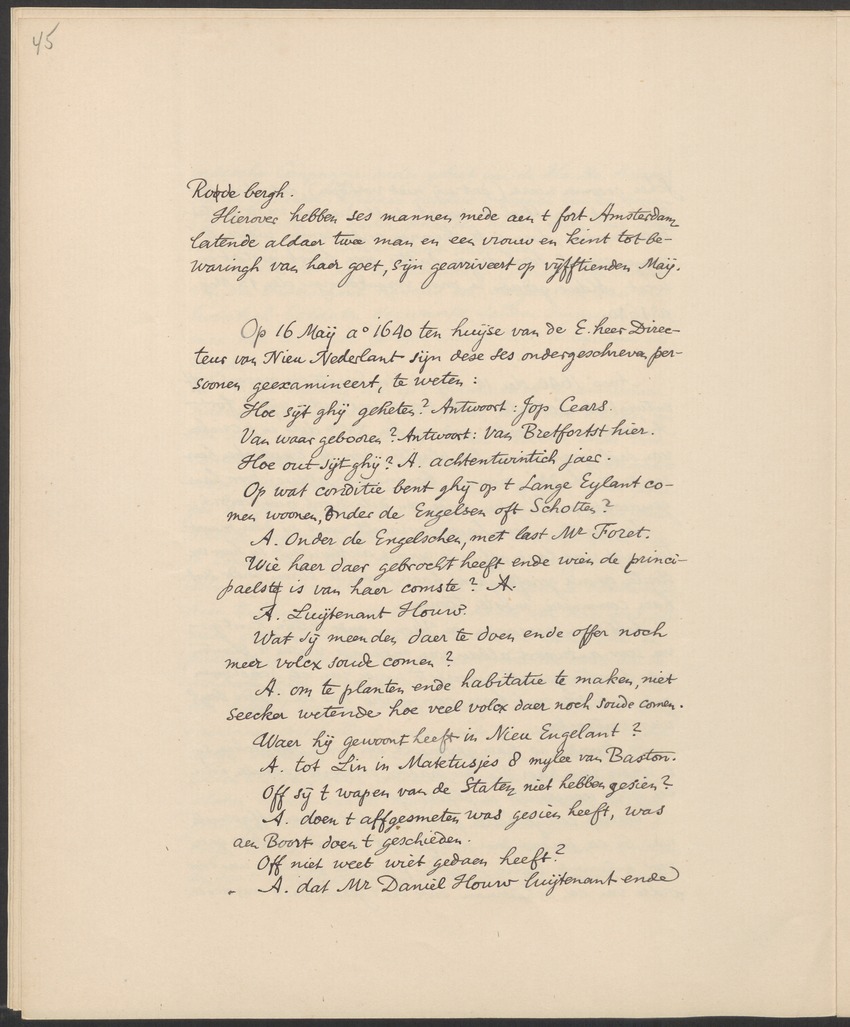 45
Roode bergh.
Hierover hebben ses mannen mede aen t fort Amsterdam
latende aldaer twee man en een vrouw en kint tot be-
waringh van haer goet, sijn gearriveert op vijfftienden Maij.
Op 16 Maij a° 1640 ten huijse van de E. heer Direc-
teur van Nieu Nederlant sijn dese ses ondergeschreven per-
soonen geexamineert, te weten:
Hoe sijt ghij geheten? Antwoort: Jop Cears.
Van waar gebooren? Antwoort: Van Bretfortst hier.
Hoe out sijt ghij? A. achtentwintich jaer.
Op wat conditie bent ghij op t Lange Eylant co-
men woonen, onder de Engelsen oft Schotten?
A. Onder de Engelschen, met last Mr Foret.
Wie haer daer gebrocht heeft ende wien de princi-
paelste is van haer comste? A.
A. Luijtenant Houw.
Wat sij meenden daer te doen ende offer noch
meer volcx soude comen?
A. om te planten ende habitatie te maken, niet
seecker wetende hoe veel volcx daer noch soude comen.
Waer hij gewoont heeft in Nieu Engelant?
A. tot Lin in Maketusjes 8 mylen van Baston.
Off sij t wapen van de Staten niet hebben gesien?
A. doen t affgesmeten was gesien heeft, was
aen Boort doen t geschieden.
Off niet weet wiet gedaen heeft?
A. dat Mr Daniel Houw luijtenant ende